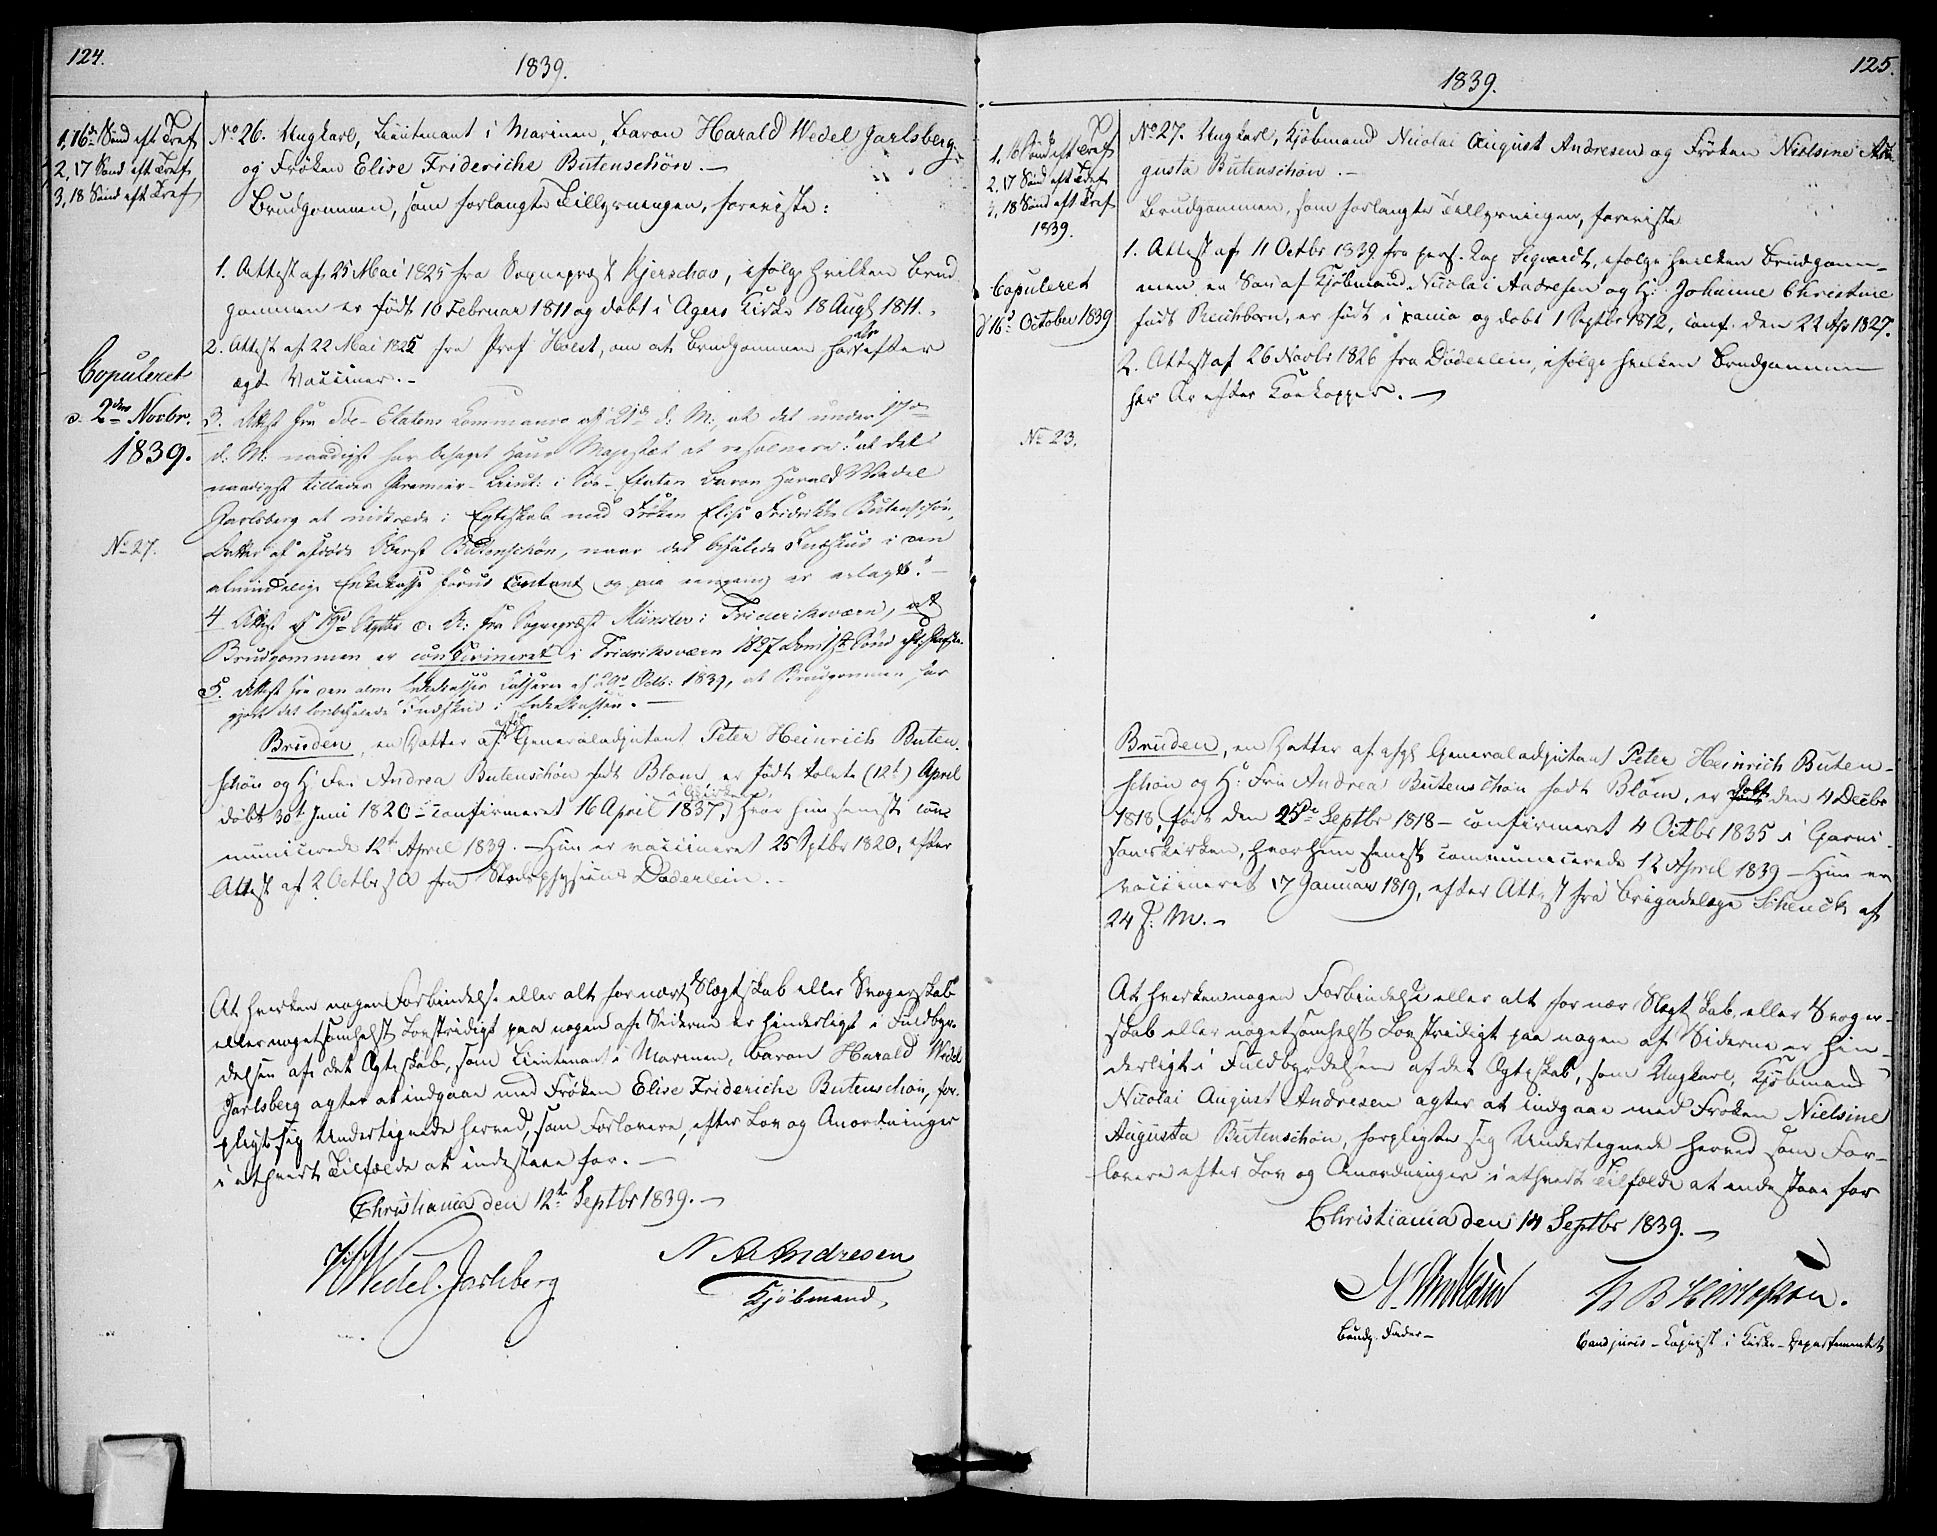 124.
1839.
1, 16de Sønd eft Tref
2, 17 Sønd eft Tref
3, 18 Sønd eft Tref
No 26. Ungkarl, Lieutenant i Marinen, Baron Harald Wedel Jarlsberg
og Frøken Elise Frideriche Butenschøn. —
Brudgommen, som forlangte Tillysningen, foreviste:
1. Attest af 25 Mai 1825 fra Sognepræst Kjerschow, ifølge hvilken Brud
gommen er født 10 Februar 1811 og døbt i Agers Kirke 18 Augt 1811.
2. Attest af 22 Mai 1825 fra Prof Holst, om at Brudgommen har Ar efter
ægte Vacciner. —
Copuleret
d. 2den Novbr.
1839.
3. Attest fra Søe-Etatens Commando af 21de d: M:, at det under 17de
d: M: naadigst har behaget Hans Majestæt at resolvere: "at det
naadigst tillades Premier-Lieut: i Søe-Etaten Baron Harald Wedel
Jarlsberg at indtræde i Egteskab med Frøken Elise Fridrikke Butenschøn,
No 27.
Datter af afdøde Oberst Butenschøn, naar det befalede Indskud i den
almindelige Enkekasse forud contant og paa eengang er erlagt." —
4 Attest af 19de Septbr d. A: fra Sognepræst Münster i Frideriksværn, at
Brudgommen er confirmeret i Fridriksværn 1827 Sønd eft: Paaske.
5. Attest fra den alm: Enkekasses Casserer af 29de Octb: 1839, at Brudgommen har
gjort det lovbefalede Indskud i Enkekassen. —
Bruden, en Datter af afgl Generaladjutant Peter Heinrich Buten-
schøn og H: Fru Andrea Butenschøn født Blom, er født tolvte (12te) April
døbt 30te Juni 1820 — confirmeret 16 April 1837, hvor hun senest com
municerede 12te April 1839. — Hun er vaccineret 25 Sptbr 1820, efter
Attest af 2 Octbr s A fra Stadsphysicus Døderlein. —
At hverken nogen Forbindelse eller alt for nært Slægtskab eller Svogerskab
eller nogetsomhelst Lovstridigt paa nogen af Siderne er hinderligt i Fuldbyr-
delsen af det Ægteskab, som Lieutenant i Marinen, Baron Harald Wedel
Jarlsberg agter at indgaae med Frøken Elise Frideriche Butenschøn, for-
pligte sig Undertegnede herved, som Forlovere, efter Lov og Anordninger
i ethvert Tilfælde at indestaae for. —
Christiania den 12te Septbr 1839. —
Wedel-Jarlsberg
N A Andresen
Kjøbmand,
125.
1839.
1, 16 Sønd eft Tref
2, 17 Sønd eft Tref
3, 18 Sønd eft Tref
1839.
No 27. Ungkarl, Kjøbmand Nicolai August Andresen og Frøken Nielsine Au
gusta Butenschøn. —
Brudgommen, som forlangte Tillysningen, foreviste
1. Attest af 11 Octbr 1839 fra pers. Kap Sigvardt, ifølge hvilken Brudgom-
men en Søn af Kjøbmand Nicolai Andresen og H: Johanne Christine
født Reichborn, er født i Xania og døbt 1 Septbr 1812, conf. den 22 Ap 1827.
Copuleret
d 16de October 1839
2. Attest af 26 Novbr 1826 fra Døderlein, ifølge hvilken Brudgommen
har Ar efter Koekopper. —
No 23.
Bruden, en Datter af afgl Generaladjutant Peter Heinrich Buten-
schøn og H: Fru Andrea Butenschøn født Blom, er døbt den 4 Decbr
1818, født den 25de Septbr 1818 — confirmeret 4 Octbr 1835 i Garni-
sonskirken, hvor hun senest communicerede 12 April 1839 — Hun er
vaccineret 17 Januar 1819, efter Attest fra Brigadelæge Schenck af
24 f. M. —
At hverken nogen Forbindelse eller alt for nær Slægtskab, eller Svoger-
skab eller nogetsomhelst Lovstridigt paa nogen af Siderne er hin-
derligt i Fuldbyrdelsen af det Ægteskab, som Ungkarl, Kjøbmand
Nicolai August Andresen agter at indgaae med Frøken Nielsine
Augusta Butenschøn, forpligte sig Undertegnede herved som For-
lovere efter Lov og Anordninger i ethvert Tilfælde at indestaae for
Christiania den 14 Septbr 1839. —
N. Andresen
Brudg. Fader —
Cand juris — Kopiist i Kirke-Departementet